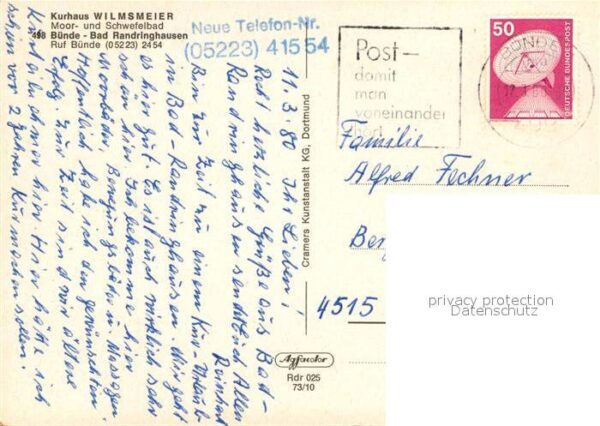 Kurhaus WILMSMEIER
Moor- und Schwefelbad
498 Bünde - Bad Randringhausen
Ruf Bünde (05223) 2454
Neue Telefon-Nr.
(05223) 41554
11.3.80 Ihr Lieben!
Recht herzliche Grüße aus Bad-
Randringhausen sendet Euch Allen
Reinhart
Bin zur Zeit zu einem Kur-Urlaub
in Bad-Randringhausen. Mir geht
es hier gut. Es ist auch wirklich sehr
schön hier. Ich bekomme hier
Moorbäder, Bewegungsbäder u. Massagen.
Hoffentlich habe ich den gewünschten
Erfolg. Zur Zeit sind wir ältere
Kurteilnehmer hier. Hier hätte ich
schon vor 2 Jahren Kur machen sollen.
Cramers Kunstanstalt KG, Dortmund
Agfacolor
Rdr 025
73/10
Post-
damit
man
voneinander
hört
50
DEUTSCHE BUNDESPOST
BÜNDE
Familie
Alfred Fechner
4515
privacy protection
Datenschutz